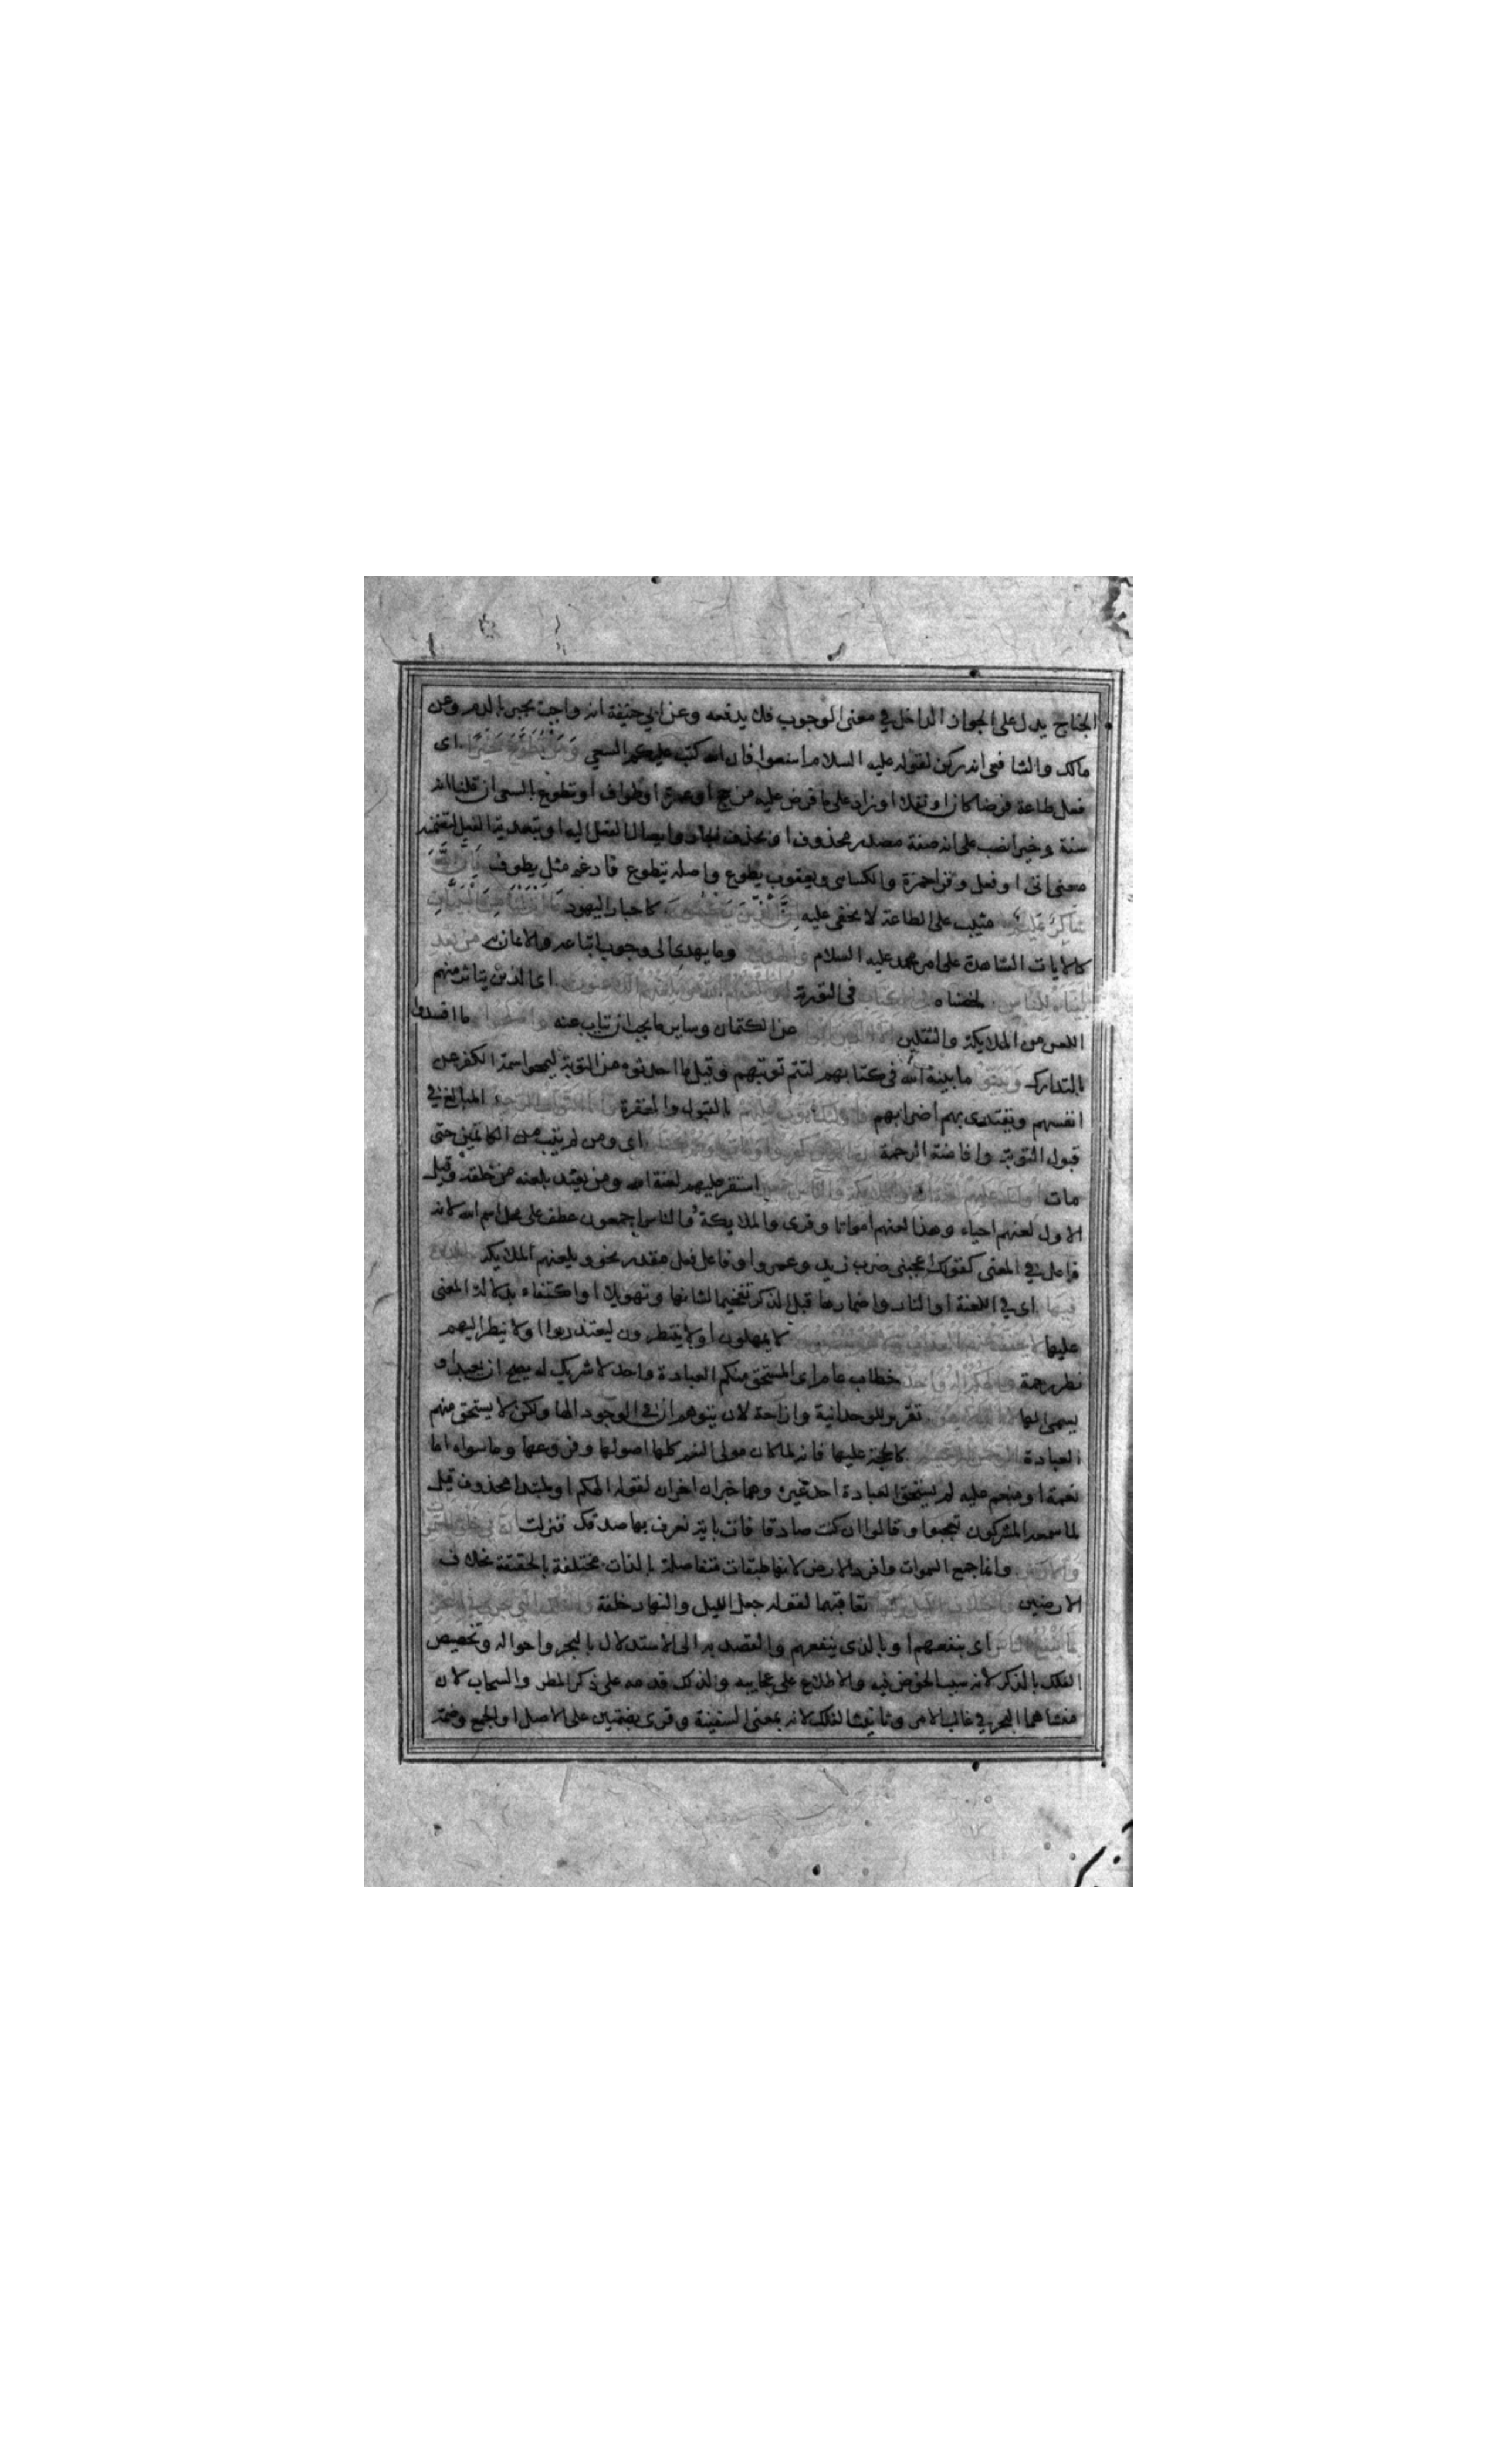 الجناح يدل على الجواز الداخل في معنى الوجوب فلا يدفعه وعن ابي حنيفة انه واجب يجبر بالدم وعن
مالك والشافعي انه ركن لقوله عليه السلام اسعوا فان الله كتب عليكم السعي وَمَنْ تَطَوَّعَ خَيْرًا اى
فعل طاعة فرضا كان او نفلا او زاد على ما فرض عليه من حج او عمرة او طواف او تطوع بالسعى ان قلنا انه
سنة وخيرا نصب على انه صفة مصدر محذوف او بحذف الجار وايصال الفعل اليه او بتعدية الفعل لتضمنه
معنى اتى او فعل وقرا حمزة والكسائى ويعقوب يطوع واصله يتطوع فادغم مثل يطوف فَاِنَّ اللهَ
شَاكِرٌ عَلِيمٌ مثيب على الطاعة لا يخفى عليه اِنَّ الَّذِينَ يَكْتُمُونَ كاحبار اليهود مَا اَنْزَلْنَا مِنَ الْبَيِّنَاتِ
كالايات الشاهدة على امر محمد عليه السلام والهدى وما يهدى الى وجوب اتباعه والايمان به من بعد
ما بيناه للناس لخصناه فى الكتاب فى التورية اولئك يلعنهم الله ويلعنهم اللاعنون اى الذين يتاتى منهم
اللعن من الملايكة والثقلين الا الذين تابوا عن الكتمان وساير ما يجب ان يتاب عنه واصلحوا ما افسدوا
بالتدارك وبينوا ما بينه الله فى كتابهم لتتم توبتهم وقيل ما احدثوه من التوبة ليمحوا سمة الكفر عن
انفسهم ويقتدى بهم اضرابهم فاولئك اتوب عليهم بالقبول والمغفرة وانا التواب الرحيم المبالغ في
قبول التوبة وافاضة الرحمة ان الذين كفروا وماتوا وهم كفار اى ومن لم يتب من الكاتمين حتى
مات اولئك عليهم لعنة الله والملائكة والناس اجمعين استقر عليهم لعنة الله ومن يعتد بلعنه من خلقه وقيل
الاول لعنهم احياء وهذا لعنهم امواتا وقرى والملايكة والناس اجمعون عطف على محل اسم الله لانه
فاعل في المعنى كقولك اعجبنى ضرب زيد وعمرو او فاعل لفعل مقدر نحو ويلعنهم الملايكة خالدين
فيها اى في اللعنة او النار واضمارها قبل الذكر تفخيما لشانها وتهويلا او اكتفاء بدلالة المعنى
عليها لا يخفف عنهم العذاب ولا هم ينظرون لا يمهلون او لا ينتظرون ليعتذروا او لا ينظر اليهم
نظر رحمة والهكم اله واحد خطاب عام اى المستحق منكم العبادة واحد لا شريك له يصح ان يعبد او
يسمى الها لا اله الا هو تقرير للوحدانية وازاحة لان يتوهم ان فى الوجود الها ولكن لا يستحق منهم
العبادة الرحمن الرحيم كالحجة عليها فانه لما كان مولى النعم كلها اصولها وفروعها وما سواه اما
نعمة او منعم عليه لم يستحق العبادة احد غيره وهما خبران اخران لقوله الهكم او لمبتدا محذوف قيل
لما سمعه المشركون تعجبوا وقالوا ان كنت صادقا فات باية نعرف بها صدقك فنزلت ان في خلق السموات
والارض وانما جمع السموات وافرد الارض لانها طبقات متفاصلة بالذات مختلفة بالحقيقة بخلاف
الارضين واختلاف الليل والنهار تعاقبهما لقوله جعل الليل والنهار خلفة والفلك التي تجري في البحر
بما ينفع الناس اى ينفعهم او بالذى ينفعهم والقصد به الى الاستدلال بالبحر واحواله وتخصيص
الفلك بالذكر لانه سبب الخوض فيه والاطلاع على عجايبه ولذلك قدمه على ذكر المطر والسحاب لان
منشاهما البحر في غالب الامر وتانيث الفلك لانه بمعنى السفينة وقرى بضمتين على الاصل او الجمع وضمة